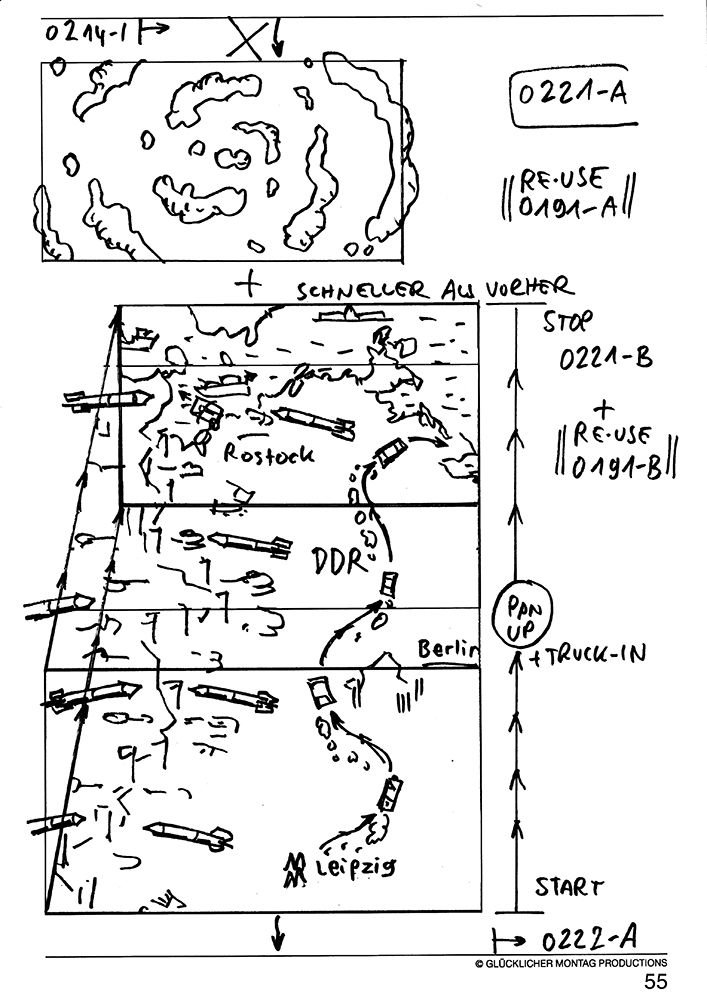 0214-1
0221-A
RE-USE
0191-A
+ SCHNELLER ALS VORHER
STOP
0221-B
+
RE-USE
0191-B
Rostock
DDR
PAN
UP
Berlin
+TRUCK-IN
Leipzig
START
0222-A
© GLÜCKLICHER MONTAG PRODUCTIONS
55